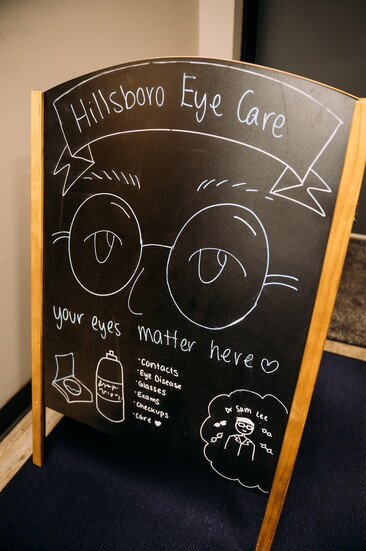 Hillsboro Eye Care
your eyes matter here ♡
·Contacts
·Eye Disease
·Glasses
·Exams
·Checkups
·Care ♥
Dr Sam Lee